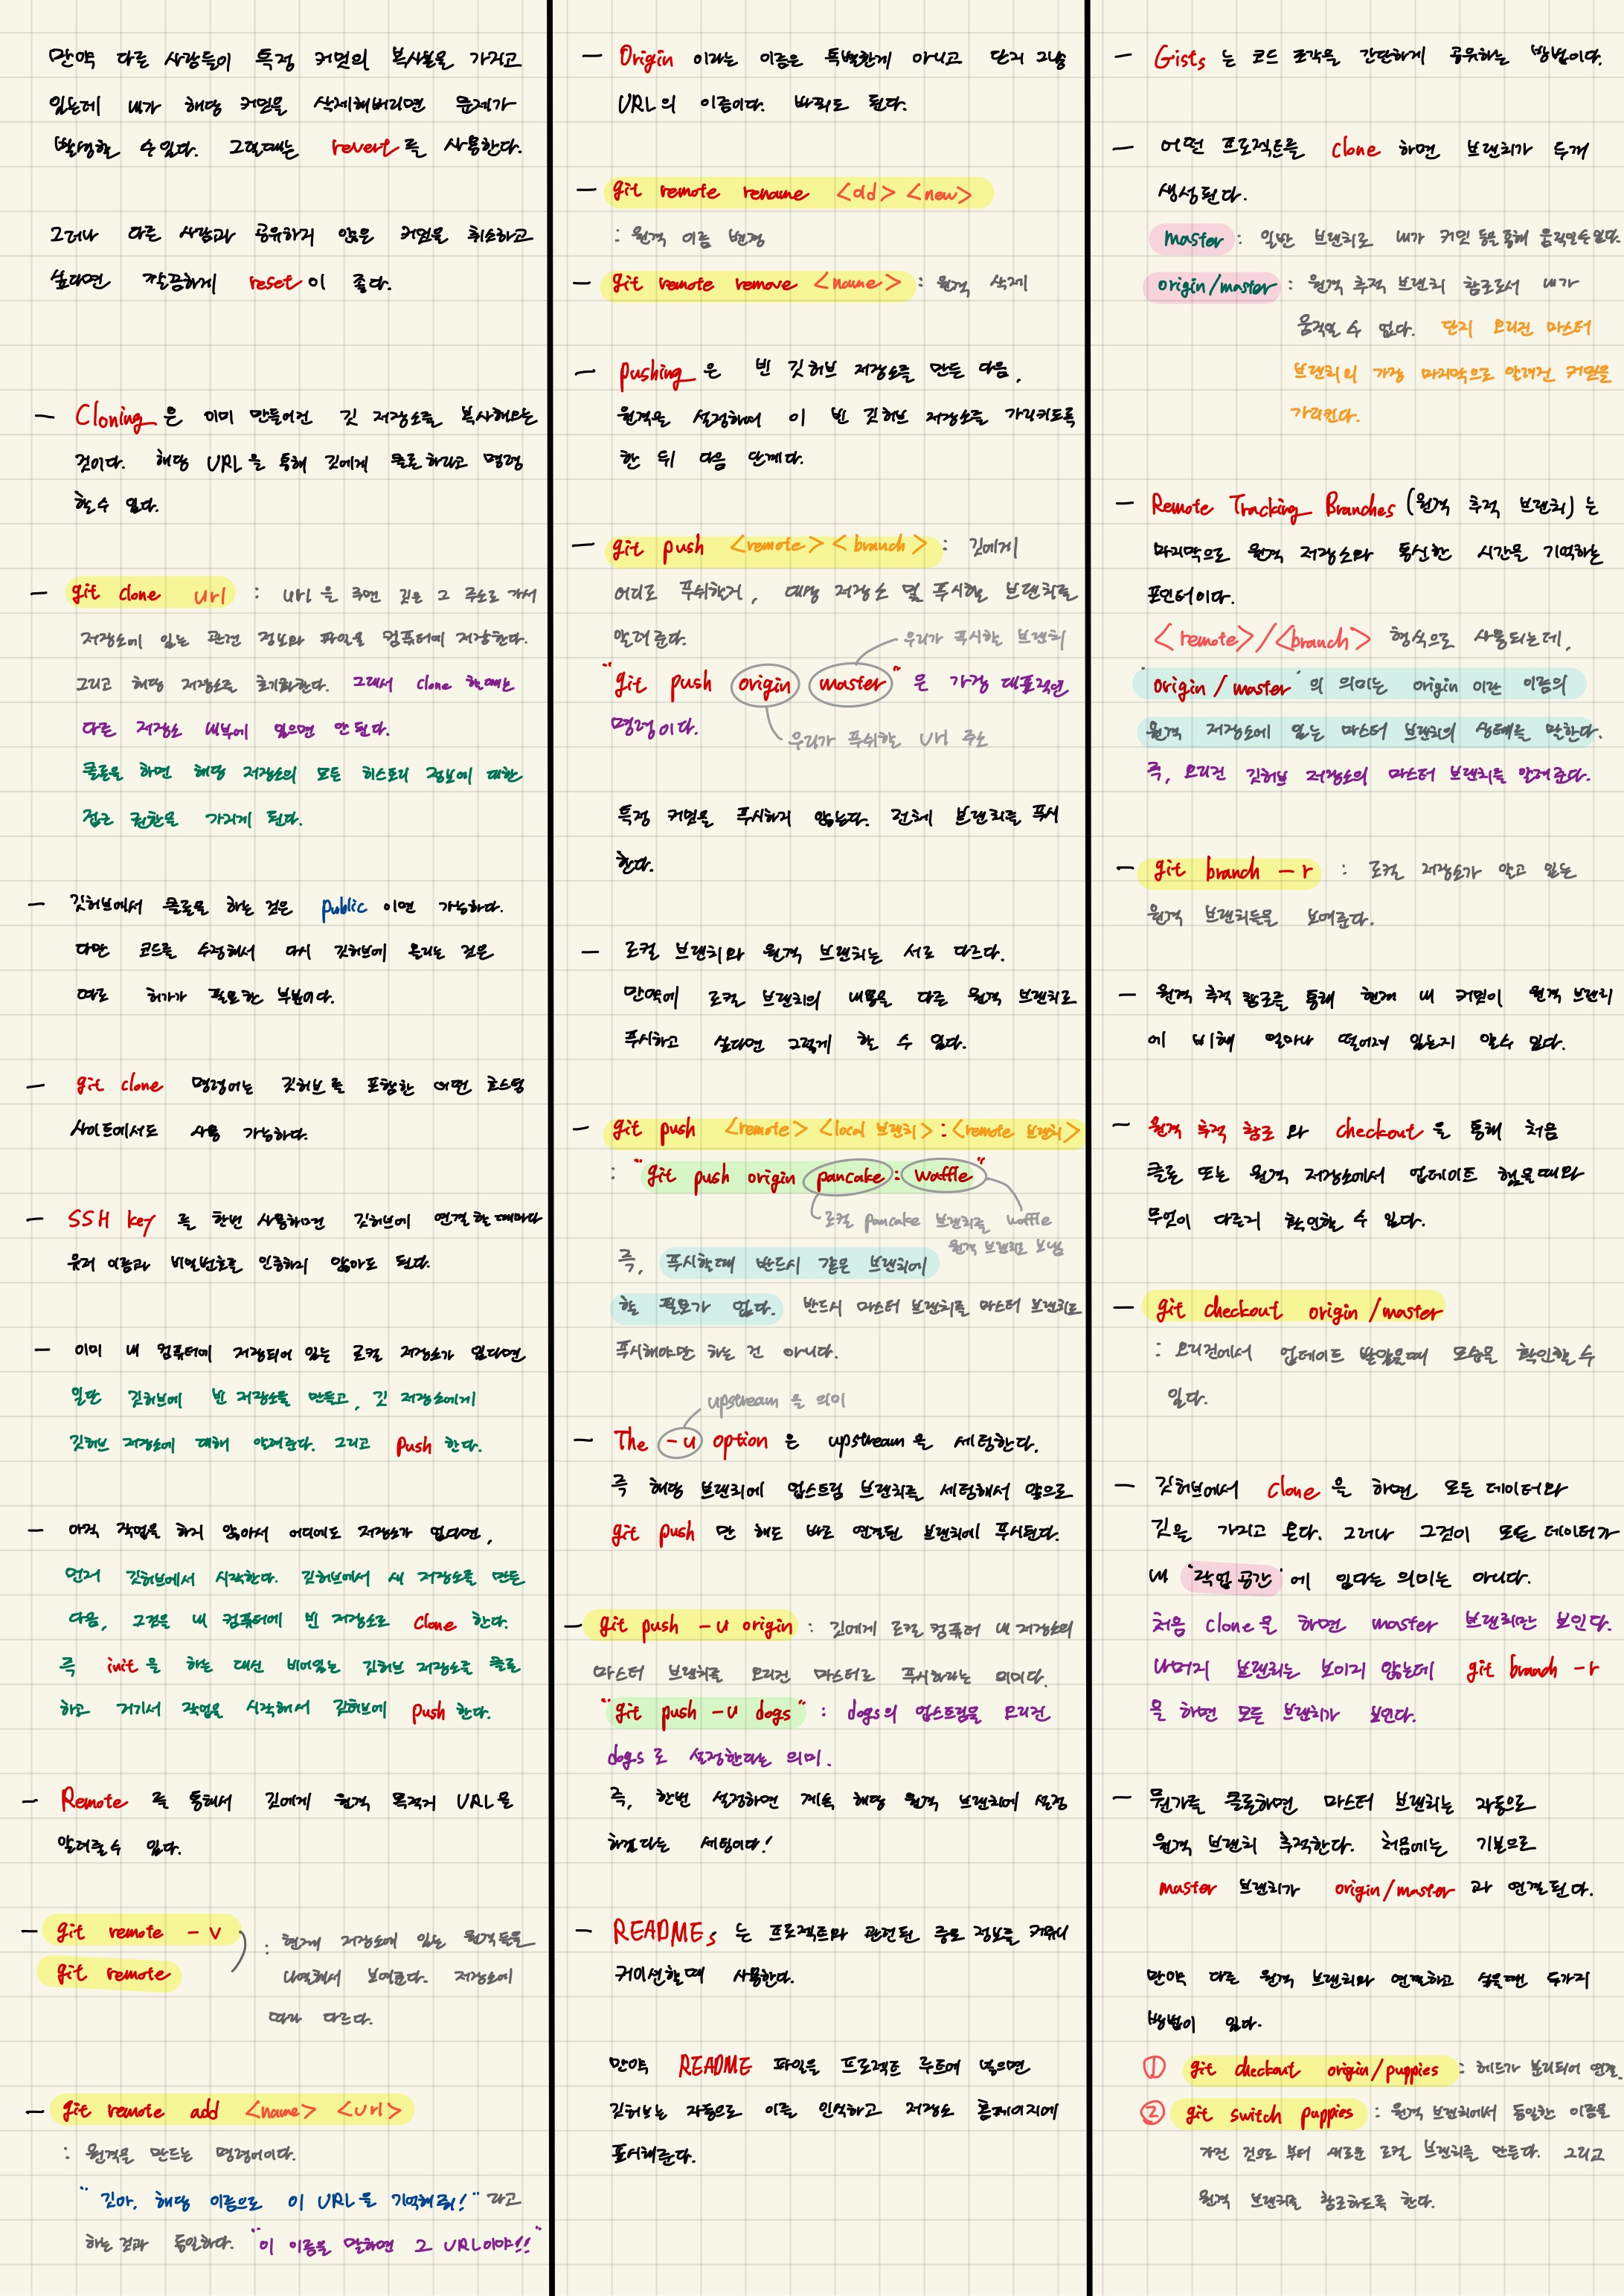 만약 다른 사람들이 특정 커밋의 복사본을 가지고
있는데 내가 해당 커밋을 삭제해버리면 문제가
발생할 수있다. 그럴때는 revert를 사용한다.
그러나 다른 사람과 공유하지 않은 커밋을 취소하고
싶다면 깔끔하게 reset이 좋다.
— Cloning은 이미 만들어진 깃 저장소를 복사해오는
것이다. 해당 URL을 통해 깃에게 클론하라고 명령
할수 있다.
— git clone url : url을 주면 깃은 그 주소로 가서
저장소에 있는 관련 정보와 파일을 컴퓨터에 저장한다.
그리고 해당 저장소를 초기화한다. 그래서 clone 할때는
다른 저장소 내부에 있으면 안 된다.
클론을 하면 해당 저장소의 모든 히스토리 정보에 대한
접근 권한을 가지게 된다.
— 깃허브에서 클론을 하는 것은 public 이면 가능하다.
다만 코드를 수정해서 다시 깃허브에 올리는 것은
따로 허가가 필요한 부분이다.
— git clone 명령어는 깃허브를 포함한 어떤 호스팅
사이트에서도 사용 가능하다.
— SSH key 를 한번 사용하면 깃허브에 연결할때마다
유저 이름과 비밀번호를 인증하지 않아도 된다.
— 이미 내 컴퓨터에 저장되어 있는 로컬 저장소가 있다면
일단 깃허브에 빈 저장소를 만들고, 깃 저장소에게
깃허브 저장소에 대해 알려준다. 그리고 Push 한다.
— 아직 작업을 하지 않아서 어디에도 저장소가 없다면,
먼저 깃허브에서 시작한다. 깃허브에서 새 저장소를 만든
다음, 그것을 내 컴퓨터에 빈 저장소로 Clone 한다.
즉 init을 하는 대신 비어있는 깃허브 저장소를 클론
하고 거기서 작업을 시작해서 깃허브에 Push 한다.
— Remote 를 통해서 깃에게 원격 목적지 URL을
알려줄수 있다.
— git remote -v
git remote
: 현재 저장소에 있는 원격들을
나열해서 보여준다. 저장소에
따라 다르다.
— git remote add <name> <url>
: 원격을 만드는 명령어이다.
"깃아, 해당 이름으로 이 URL을 기억해줘!" 라고
하는것과 동일하다. "이 이름을 말하면 그 URL이야!!"
— Origin 이라는 이름은 특별한게 아니고 단지 그냥
URL의 이름이다. 바꿔도 된다.
— git remote rename <old> <new>
: 원격 이름 변경
— git remote remove <name> : 원격 삭제
— pushing은 빈 깃허브 저장소를 만든 다음,
원격을 설정하여 이 빈 깃허브 저장소를 가리키도록
한 뒤 다음 단계다.
— git push <remote> <branch> : 깃에게
어디로 푸쉬할거, 대상 저장소 및 푸시할 브랜치를
알려준다.
우리가 푸시할 브랜치
"git push origin master" 은 가장 대표적인
명령이다.
우리가 푸쉬할 url 주소
특정 커밋을 푸시하지 않는다. 전체 브랜치를 푸시
한다.
— 로컬 브랜치와 원격 브랜치는 서로 다르다.
만약에 로컬 브랜치의 내용을 다른 원격 브랜치로
푸시하고 싶다면 그렇게 할 수 있다.
— git push <remote> <local 브랜치>:<remote 브랜치>
: "git push origin pancake : waffle"
로컬 pancake 브랜치를 waffle
원격 브랜치로 보냄
즉, 푸시할때 반드시 같은 브랜치에
할 필요가 없다. 반드시 마스터 브랜치를 마스터 브랜치로
푸시해야만 하는 건 아니다.
upstream 을 의미
— The -u option 은 upstream을 세팅한다.
즉 해당 브랜치에 업스트림 브랜치를 세팅해서 앞으로
git push 만 해도 바로 연결된 브랜치에 푸시된다.
— git push -u origin : 깃에게 로컬 컴퓨터 내 저장소의
마스터 브랜치를 오리진 마스터로 푸시하라는 의미다.
"git push -u dogs" : dogs의 업스트림을 오리진
dogs로 설정한다는 의미.
즉, 한번 설정하면 계속 해당 원격 브랜치에 설정
하겠다는 세팅이다!
— READMEs 는 프로젝트와 관련된 중요 정보를 커뮤니
케이션할때 사용한다.
만약 README 파일을 프로젝트 루트에 넣으면
깃허브는 자동으로 이를 인식하고 저장소 홈페이지에
표시해준다.
— Gists 는 코드 조각을 간단하게 공유하는 방법이다.
— 어떤 프로젝트를 clone 하면 브랜치가 두개
생성된다.
master : 일반 브랜치로 내가 커밋 등을 통해 움직일수있다.
origin/master : 원격 추적 브랜치 참조로서 내가
움직일 수 없다. 단지 오리진 마스터
브랜치의 가장 마지막으로 알려진 커밋을
가리킨다.
— Remote Tracking Branches (원격 추적 브랜치)는
마지막으로 원격 저장소와 통신한 시간을 기억하는
포인터이다.
<remote>/<branch> 형식으로 사용되는데,
'origin/master'의 의미는 origin 이란 이름의
원격 저장소에 있는 마스터 브랜치의 상태를 말한다.
즉, 오리진 깃허브 저장소의 마스터 브랜치를 알려준다.
— git branch -r : 로컬 저장소가 알고 있는
원격 브랜치들을 보여준다.
— 원격 추적 참조를 통해 현재 내 커밋이 원격 브랜치
에 비해 얼마나 떨어져 있는지 알수 있다.
— 원격 추적 참조 와 checkout을 통해 처음
클론 또는 원격 저장소에서 업데이트 했을때와
무엇이 다른지 확인할 수 있다.
— git checkout origin/master
: 오리진에서 업데이트 받았을때 모습을 확인할 수
있다.
— 깃허브에서 clone을 하면 모든 데이터와
깃을 가지고 온다. 그러나 그것이 모든 데이터가
내 '작업 공간'에 있다는 의미는 아니다.
처음 clone을 하면 master 브랜치만 보인다.
나머지 브랜치는 보이지 않는데 git branch -r
을 하면 모든 브랜치가 보인다.
— 뭔가를 클론하면 마스터 브랜치는 자동으로
원격 브랜치 추적한다. 처음에는 기본으로
master 브랜치가 origin/master 과 연결된다.
만약 다른 원격 브랜치와 연결하고 싶을땐 두가지
방법이 있다.
① git checkout origin/puppies : 헤드가 분리되어 연결.
② git switch puppies : 원격 브랜치에서 동일한 이름을
가진 것으로 부터 새로운 로컬 브랜치를 만든다. 그리고
원격 브랜치를 참조하도록 한다.